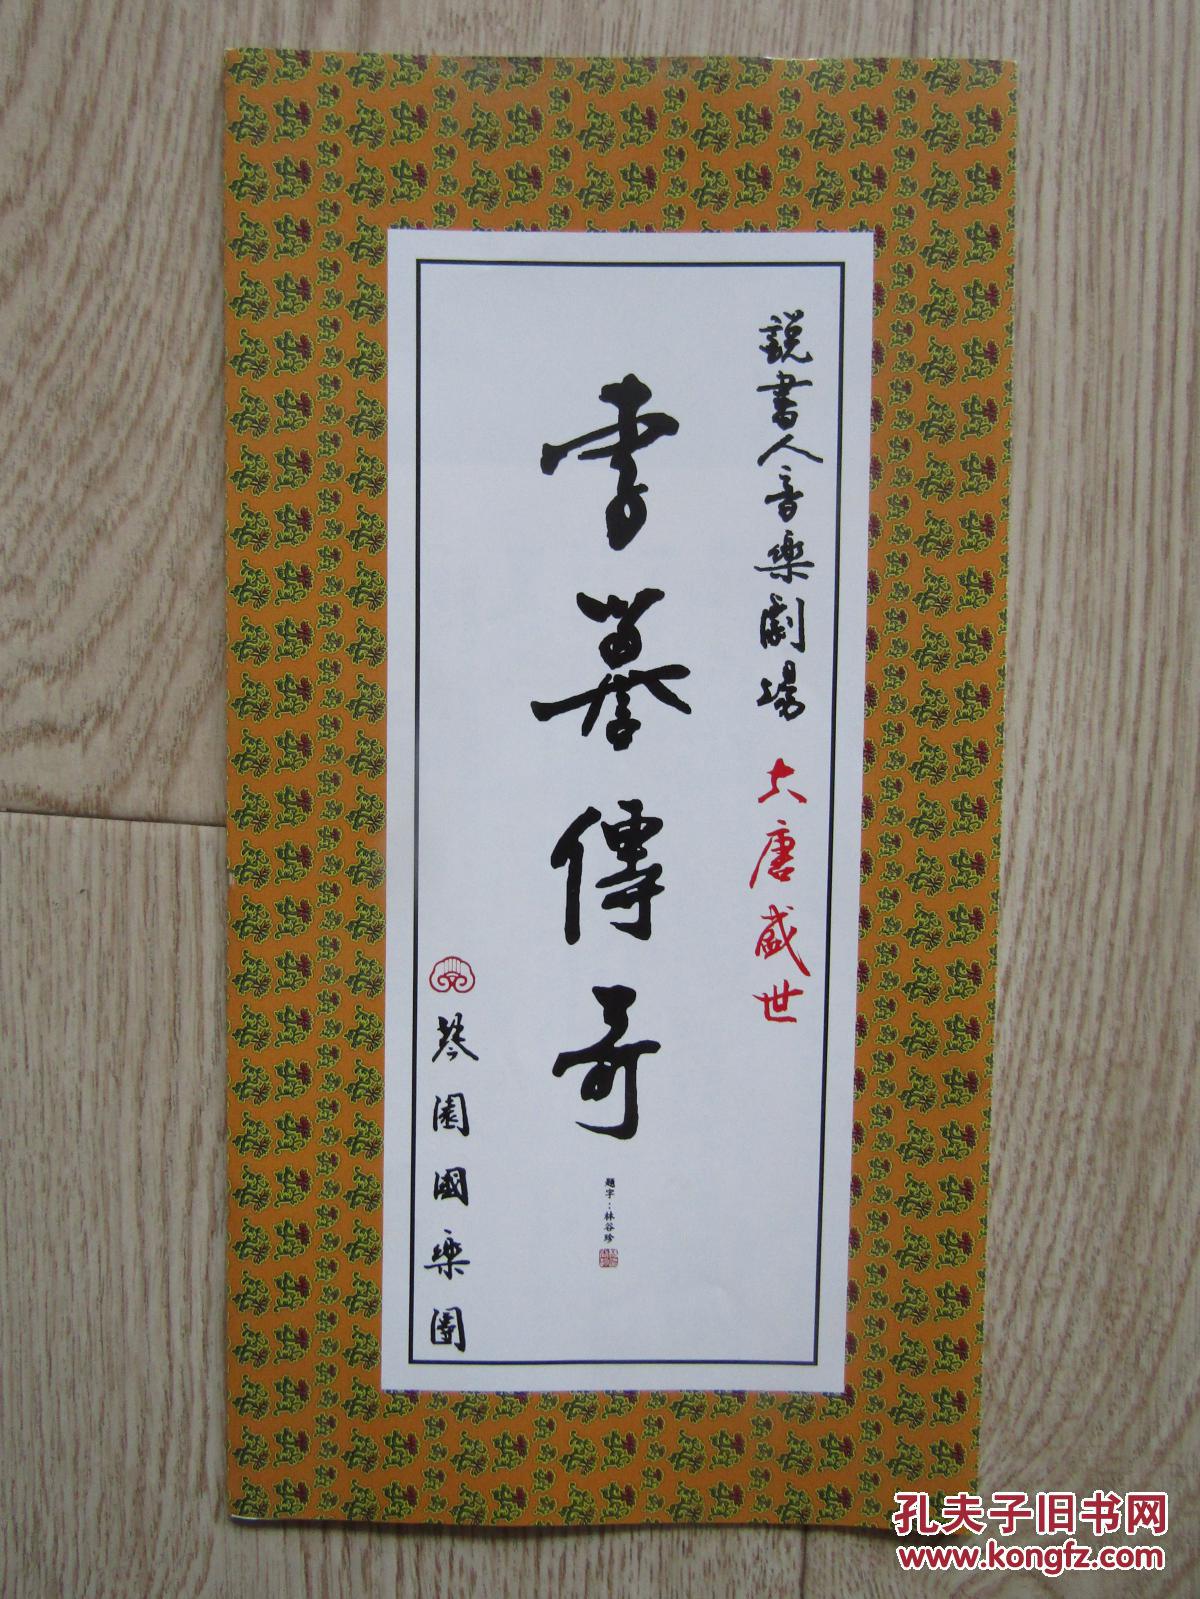 説書人音樂劇場 大唐盛世
李摹傳奇
題字：林谷珍
琴園國樂團
孔夫子旧书网
www.kongfz.com